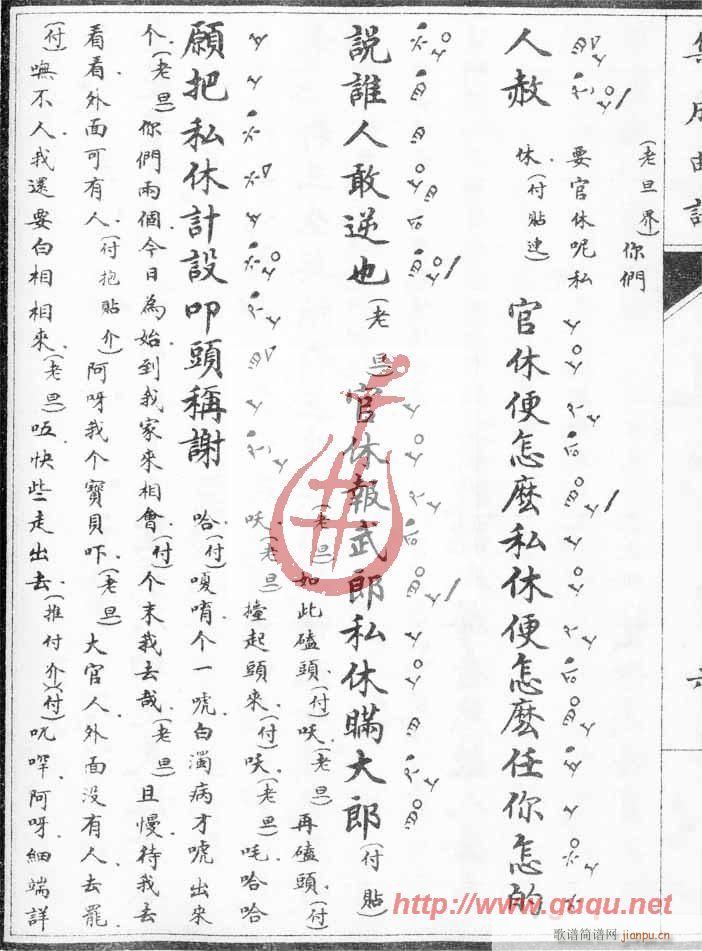 集成曲譜
人赦
(老旦界)你們
要官休呢私
休(付貼連)
官休便怎麽私休便怎麽任你怎的
說誰人敢逆也(老旦)官休報武郎私休瞞大郎(付貼)
願把私休計設叩頭稱謝
(老旦)如此磕頭(付)呅(老旦)再磕頭(付)
呅(老旦)擡起頭來(付)呅(老旦)吒哈哈
哈(付)嗄唷个一唬白濁病才唬出來
个(老旦)你們兩個今日為始到我家來相會(付)个末我去哉(老旦)且慢待我去
看看外面可有人(付抱貼介)阿呀我个寶貝吓(老旦)大官人外面没有人去罷
(付)嘸不人我還要白相相來(老旦)咗快些走出去(推付介)(付)阿呀細端詳
http://www.guqu.net
歌谱简谱网 jianpu.cn